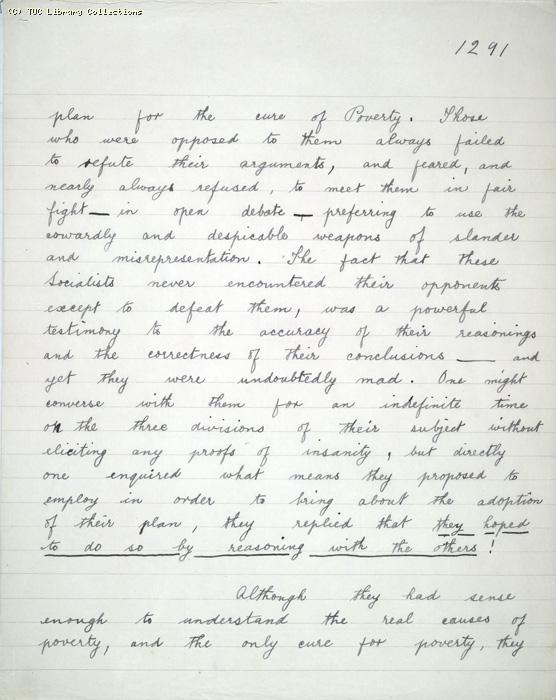 (C) TUC Library Collections
1291
plan for the cure of Poverty. Those
who were opposed to them always failed
to refute their arguments, and feared, and
nearly always refused, to meet them in fair
fight — in open debate — preferring to use the
cowardly and despicable weapons of slander
and misrepresentation. The fact that these
Socialists never encountered their opponents
except to defeat them, was a powerful
testimony to the accuracy of their reasonings
and the correctness of their conclusions — and
yet they were undoubtedly mad. One might
converse with them for an indefinite time
on the three divisions of their subject without
eliciting any proofs of insanity, but directly
one enquired what means they proposed to
employ in order to bring about the adoption
of their plan, they replied that they hoped
to do so by reasoning with the others!
Although they had sense
enough to understand the real causes of
poverty, and the only cure for poverty, they